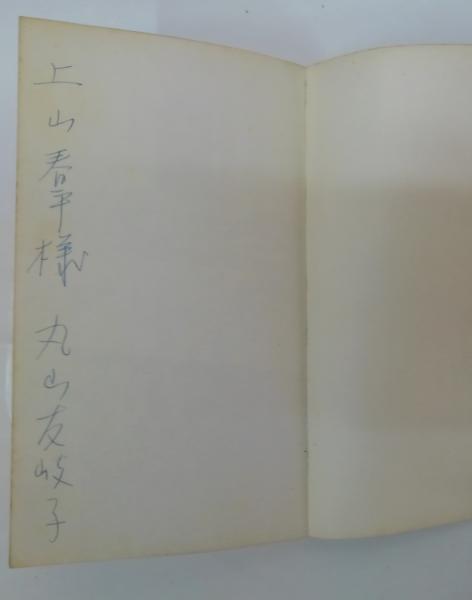 上山春平様 丸山友岐子